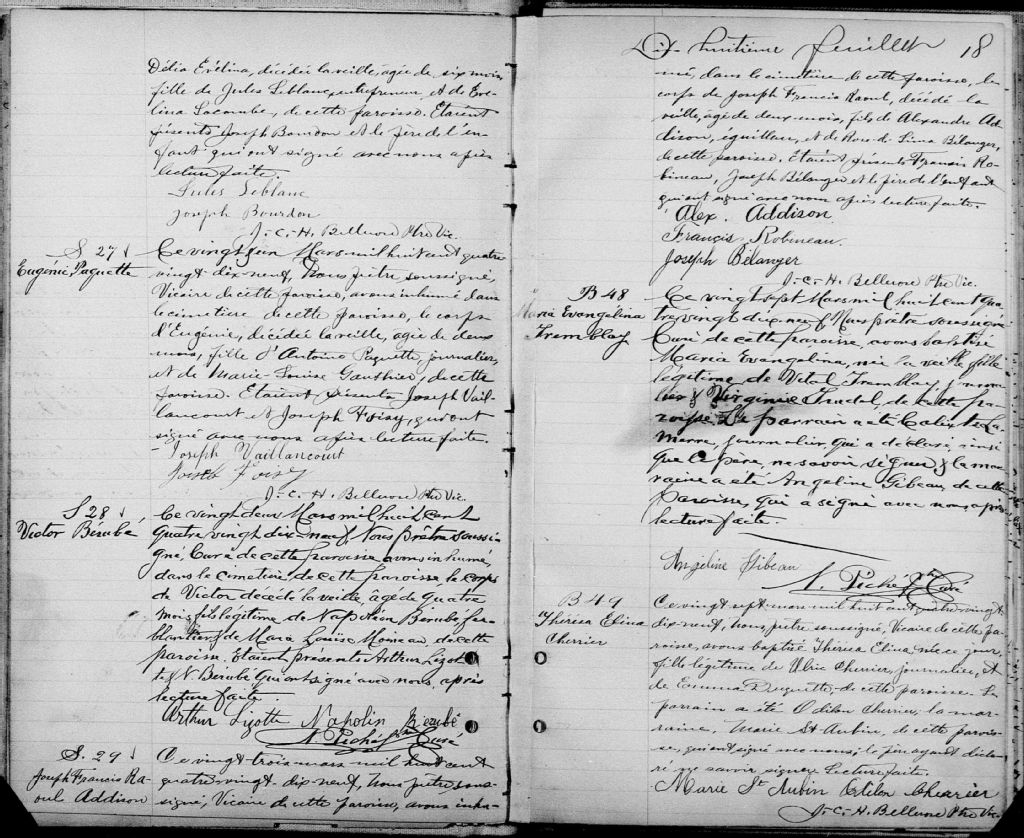 Délia Evélina, décédée la veille, agée de six mois
fille de Jules Leblanc, entrepreneur, et de Eve-
lina Lacombe, de cette paroisse. Etaient
présents Joseph Bourdon et le père de l'en-
fant qui ont signé avec nous après
lecture faite.
Jules Leblanc
Joseph Bourdon
J.-C.-H. Bellerose Ptre Vic.
S 27
Eugénie Paquette
Ce vingt un Mars mil huit cent quatre
vingt dix-neuf, Nous prêtre soussigné,
Vicaire de cette paroisse, avons inhumé dans
le cimetière de cette paroisse, le corps
d'Eugénie, décédée la veille, agée de deux
mois, fille d'Antoine Paquette, journalier,
et de Marie-Louise Gauthier, de cette
paroisse. Etaient présents Joseph Vail-
lancourt et Joseph Foisy, qui ont
signé avec nous après lecture faite.
Joseph Vaillancourt
Joseph Foisy
J.-C.-H. Bellerose Ptre Vic.
S 28
Victor Bérubé
Ce vingt deux Mars mil huit cent
quatre vingt dix-neuf, Nous prêtre soussi-
gné, Curé de cette paroisse avons inhumé,
dans le cimetière de cette paroisse le corps
de Victor décédé la veille, âgé de quatre
mois, fils légitime de Napoléon Bérubé, fer-
blantier & de Maria Louise Moineau de cette
paroisse. Etaient présents Arthur Lizotte
& N Bérubé qui ont signé avec nous, après
lecture faite.
Arthur Lizotte Napolin Berubé
N. Piché Ptre Curé
S. 29
Joseph Francis Ra-
oul Addison
Ce vingt-trois mars mil huit cent
quatre vingt dix-neuf, Nous prêtre sous-
signé, Vicaire de cette paroisse, avons inhu-
Dix huitième feuillet 18
mé, dans le cimetière de cette paroisse, le
corps de Joseph Francis Raoul, décédé la
veille, agé de deux mois, fils de Alexandre Ad-
dison, éguilleur, et de Rose de Lima Bélanger,
de cette paroisse. Etaient présents Francis Ro-
bineau, Joseph Bélanger et le père de l'enfant
qui ont signé avec nous après lecture faite.
Alex. Addison
Francis Robineau.
Joseph Bélanger
J.-C.-H. Bellerose Ptre Vic.
B 48
Maria Evangélina
Tremblay
Ce vingt sept Mars mil huit cent qua-
tre vingt dix neuf Nous prêtre soussigné
Curé de cette paroisse, avons baptisé
Maria Evangelina, née la veille, fille
légitime de Vital Tremblay, journa-
lier & Virginie Trudel, de cette pa-
roisse. Le parrain a été Calixte La-
marre, journalier, qui a déclaré, ainsi
que le père, ne savoir signer & la mar-
raine a été Angeline Gibeau, de cette
paroisse, qui a signé avec nous, après
lecture faite.
Angéline Gibeau
N. Piché Ptre Curé
B 49
Thérésa Elina
Cherrier
Ce vingt sept mars mil huit cent quatre vingt
dix-neuf, Nous prêtre soussigné, Vicaire de cette pa-
roisse, avons baptisé Thérésa Elina née ce jour,
fille légitime de Ulric Cherrier, journalier, et
de Emma Duquette de cette paroisse. Le
parrain a été Odilon Cherrier, la mar-
raine, Marie St Aubin, de cette parois-
se, qui ont signé avec nous; le père ayant décla-
ré ne savoir signer. Lecture faite.
Marie St Aubin Odilon Cherrier
J.-C.-H. Bellerose Ptre Vic.